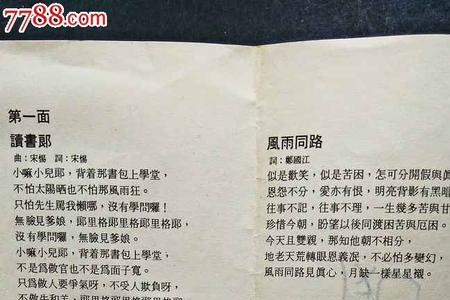 7788.com
第一面
讀書郎
曲：宋惕　詞：宋惕
小嘛小兒郎，背着那書包上學堂，
不怕太陽晒也不怕那風雨狂。
只怕先生罵我懶哪，沒有學問囉！
無臉見爹娘，耶里格耶里格耶里格，
沒有學問囉，無臉見爹娘。
小嘛小兒郎，背着那書包上學堂，
不是爲做官也不是爲面子寬。
只爲做人要爭氣呀，不受人欺負呀，
不做牛和羊，耶里格耶里格耶里格
風雨同路
詞：鄭國江
似是歡笑，似是苦困，怎可分開假與眞
恩怨不分，愛亦有恨，明亮背影有黑暗
往事不記，往事不理，一生幾多苦與甘
珍惜今朝，盼望以後同渡困苦與厄困。
今天且雙親，那知他朝不相分，
地老天荒轉眼恩義泯，不必怕多變幻，
風雨同路見眞心，月缺一樣星星襯。